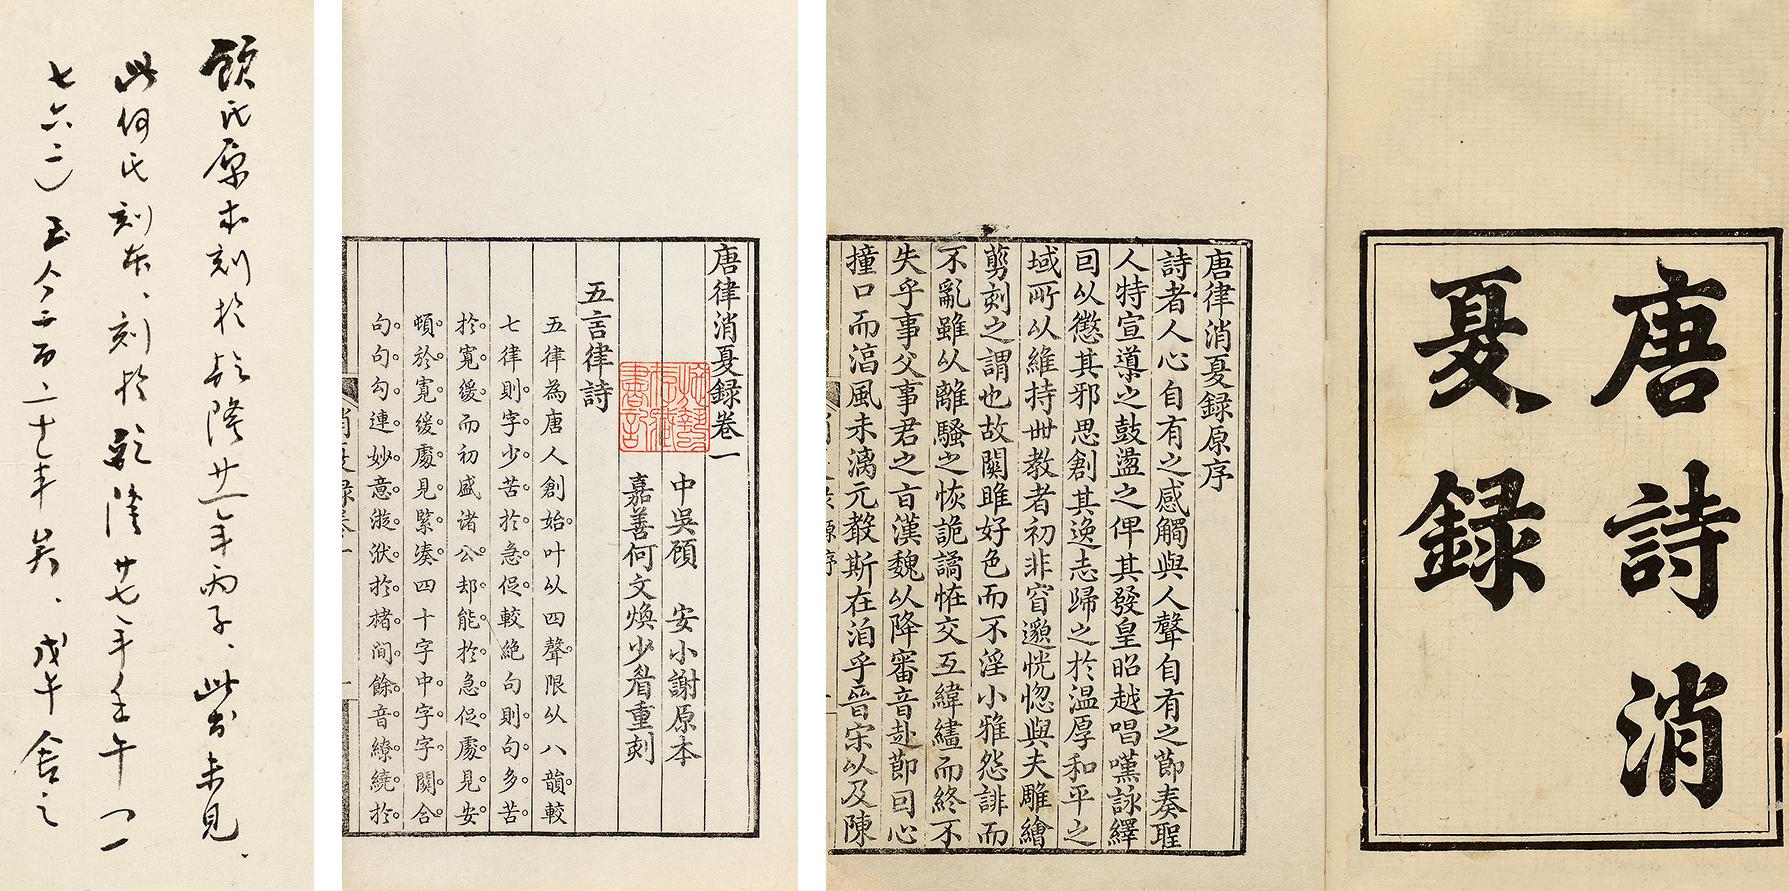 唐詩消
夏録
唐律消夏録原序
詩者人心自有之感觸與人聲自有之節奏聖
人特宣導之鼓盪之俾其發皇昭越唱嘆詠繹
囘以懲其邪思創其逸志歸之於温厚和平之
域所以維持世教者初非窅邈恍惚與夫雕繪
剪刻之謂也故關雎好色而不淫小雅怨誹而
不亂雖以離騷之恢詭譎恠交互緯繣而終不
失乎事父事君之旨漢魏以降審音赴節囘心
撞口而滀風未漓元聲斯在洎乎晉宋以及陳
唐律消夏録卷一
中吳顧 安小謝原本
嘉善何文煥少眉重刻
五言律詩
五律為唐人創始叶以四聲限以八韻較
七律則字少苦於急促較絶句則句多苦
於寬緩而初盛諸公却能於急促處見安
頓於寬緩處見緊凑四十字中字字關合
句句勾連妙意漩洑於楮間餘音繚繞於
顧氏原本刻於乾隆廿一年丙子、此书未見、
此何氏刻本、刻於乾隆廿七年壬午(一
七六二)至今二百二十七年矣、戊午舍之